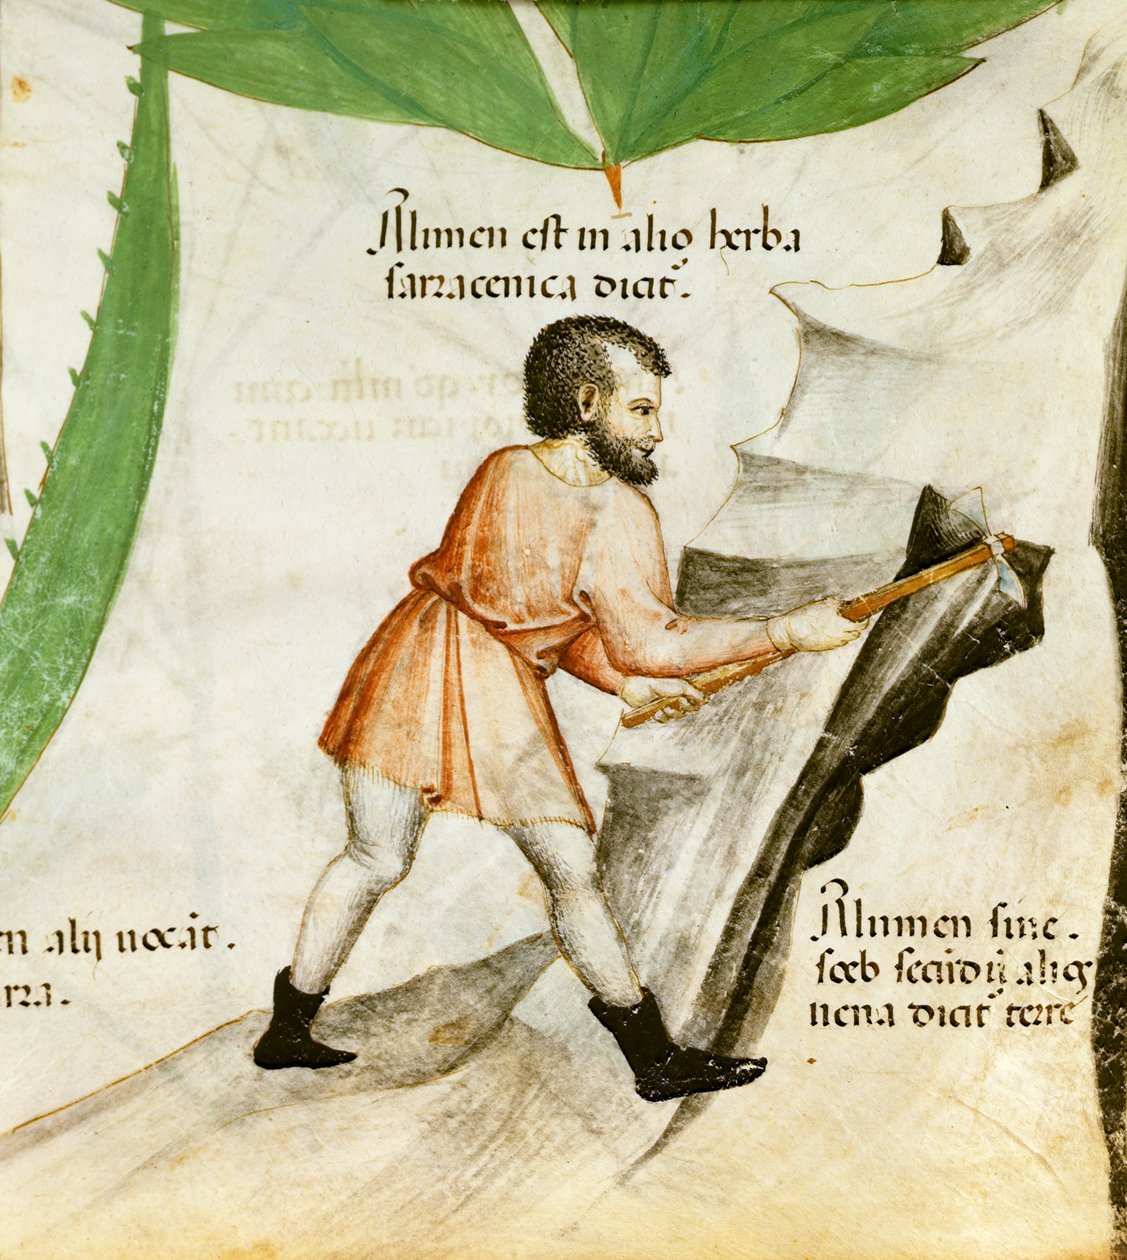 Alumen est in alio herba
sarracenica dicit̃.
en alij uocãt.
rra.
Alumen siue.
secundũ aliq̃
uena dicit̃ terre